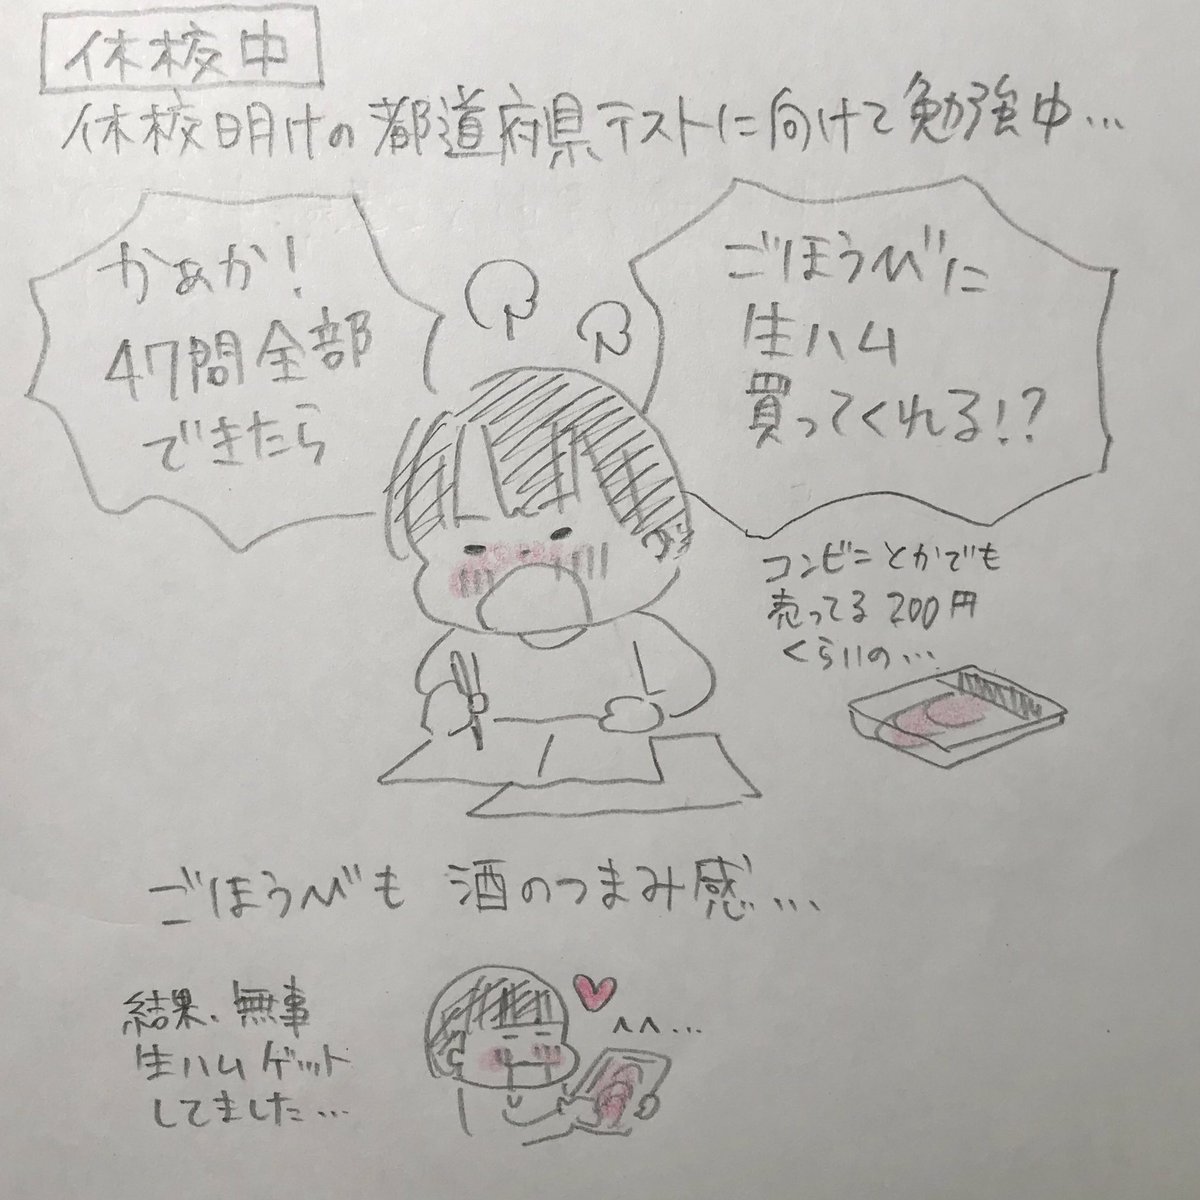 休校中
休校明けの都道府県テストに向けて勉強中…
かぁか!
47問全部
できたら
ごほうびに
生ハム
買ってくれる!?
コンビニとかでも
売ってる200円
くらいの…
ごほうびも 酒のつまみ感…
結果、無事
生ハムゲット
してました…
へへ…